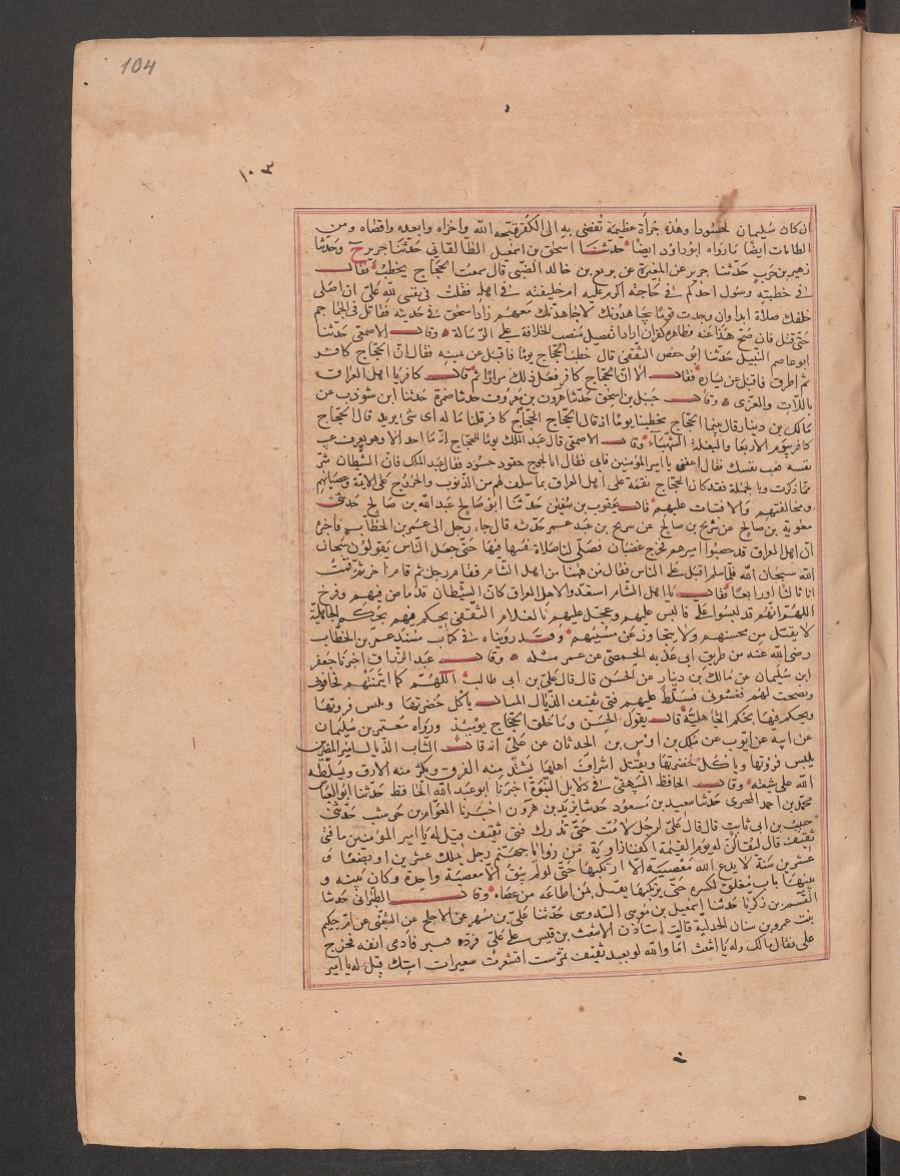 104
١٠٣
ان كان سليمان لحسودا وهذه جرأة عظيمة تفضي به الى الكفر قبحه الله واخزاه وابعده واقصاه ومن
الطامات ايضا ما رواه ابو داود ايضا حدثنا اسحق بن اسمعيل الطالقاني حدثنا جرير ح وحدثنا
زهير بن حرب حدثنا جرير عن المغيرة عن بزيع بن خالد الضبي قال سمعت الحجاج يخطب فقال
في خطبته رسول احدكم في حاجته اكرم عليه ام خليفته في اهله فقلت في نفسي لله علي ان لا اصلي
خلفك صلاة ابدا وان وجدت قوما يجاهدونك لاجاهدنك معهم زاد اسحق في حديثه فقاتل في الجماجم
حتى قتل فان صح هذا عنه فظاهره كفر ان اراد تفضيل منصب الخلافة على الرسالة وقال الاصمعي حدثنا
ابو عاصم النبيل حدثنا ابو حفص الثقفي قال خطب الحجاج يوما فاقبل عن يمينه فقال ان الحجاج كافر
ثم اطرق فاقبل عن يساره فقال الا ان الحجاج كافر فعل ذلك مرارا ثم قال كافر يا اهل العراق
باللات والعزى وقال حنبل بن اسحق حدثنا هرون بن معروف حدثنا ضمرة حدثنا ابن شوذب عن
مالك بن دينار قال بينما الحجاج يخطبنا يوما اذ قال الحجاج الحجاج كافر قلنا ما له اي شيء يريد قال الحجاج
كافر بيوم الاربعا والبغلة الشهباء وقال الاصمعي قال عبد الملك يوما للحجاج انه ما احد الا وهو يعرف عيب
نفسه فعب نفسك فقال اعفني يا امير المؤمنين فابى فقال انا لجوج حقود حسود فقال عبد الملك فان الشيطان شر
مما ذكرت وبالجملة فقد كان الحجاج نقمة على اهل العراق بما سلف لهم من الذنوب والخروج على الايمة وعصيانهم
ومخالفتهم والافتات عليهم قال يعقوب بن سفين حدثنا ابو صالح عبد الله بن صالح حدثني
معوية بن صالح عن شريح بن عبيد عمن حدثه قال جاء رجل الى عمر بن الخطاب فاخبره
ان اهل العراق قد حصبوا اميرهم فخرج غضبان فصلى لنا صلاة فسها فيها حتى جعل الناس يقولون سبحان
الله سبحان الله فلما سلم اقبل على الناس فقال من ههنا من اهل الشام فقام رجل ثم قام اخر ثم قمت
انا ثالثا او رابعا فقال يا اهل الشام استعدوا لاهل العراق فان الشيطان قد باض فيهم وفرخ
اللهم انهم قد لبسوا علي فالبس عليهم وعجل عليهم بالغلام الثقفي يحكم فيهم بحكم الجاهلية
لا يقبل من محسنهم ولا يتجاوز عن مسيئهم وقد رويناه في كتاب مسند عمر بن الخطاب
رضي الله عنه من طريق ابي عذبه الحمصي عن عمر مثله وقال عبد الرزاق اخبرنا جعفر
ابن سليمان عن مالك بن دينار عن الحسن قال قال علي بن ابي طالب اللهم كما ايتمنتهم فخانوني
ونصحت لهم فغشوني فسلط عليهم فتى ثقيف الذيال الميال ياكل خضرتها ويلبس فروتها
ويحكم فيها بحكم الجاهلية قال يقول الحسن وما خلق الحجاج يومئذ ورواه معتمر بن سليمان
عن ابيه عن ايوب عن مالك بن اوس بن الحدثان عن علي انه قال الشاب الذيال امير المصرين
يلبس فروتها وياكل خضرتها ويقتل اشراف اهلها يشتد منه الفرق ويكثر منه الارق ويسلطه
الله على شيعته وقال الحافظ البيهقي في دلايل النبوة اخبرنا ابو عبد الله الحافظ حدثنا ابو العباس
محمد بن احمد المحبوبي حدثنا سعيد بن مسعود حدثنا يزيد بن هرون اخبرنا العوام بن حوشب حدثني
حبيب بن ابي ثابت قال قال علي لرجل لا مت حتى تدرك فتى ثقيف قيل له يا امير المؤمنين ما فتى
ثقيف قال ليقالن له يوم القيمة اكفنا زاوية من زوايا جهنم رجل يملك عشرين او بضعا و
عشرين سنة لا يدع الله معصية الا ارتكبها حتى لو لم يبق الا معصية واحدة وكان بينه و
بينها باب مغلق لكسره حتى يرتكبها يقتل بمن اطاعه من عصاه وقال الطبراني حدثنا
القسم بن زكريا حدثنا اسمعيل بن موسى السدوسي حدثنا علي بن مسهر عن الاجلح عن الشعبي عن ام حكيم
بنت عمرو بن سنان الجدلية قالت استاذن الاشعث بن قيس على علي فرده قنبر فادمى انفه فخرج
علي فقال مالك وله يا اشعث اما والله لو بعبد ثقيف تمرست اقشعرت شعيرات استك قيل له يا امير